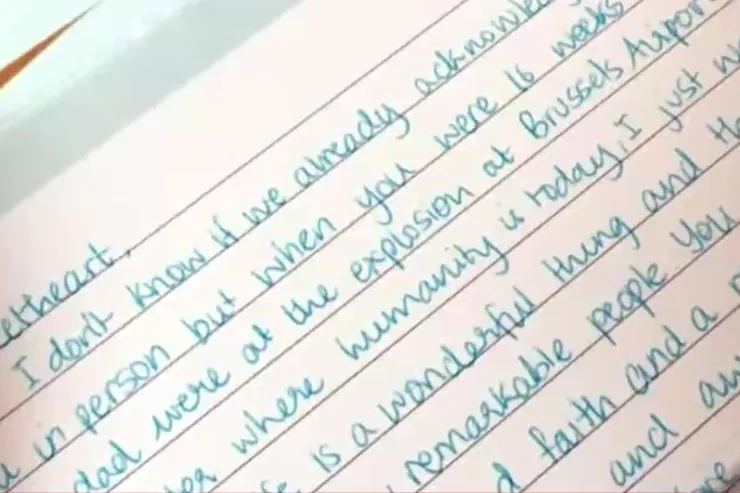 etheart,
I don't know if we already acknowle
in person but when you were 16 weeks
dad were at the explosion at Brussels Airpor
where humanity is today, I just w
is a wonderful thing and th
remarkable people you
faith and a
and aw